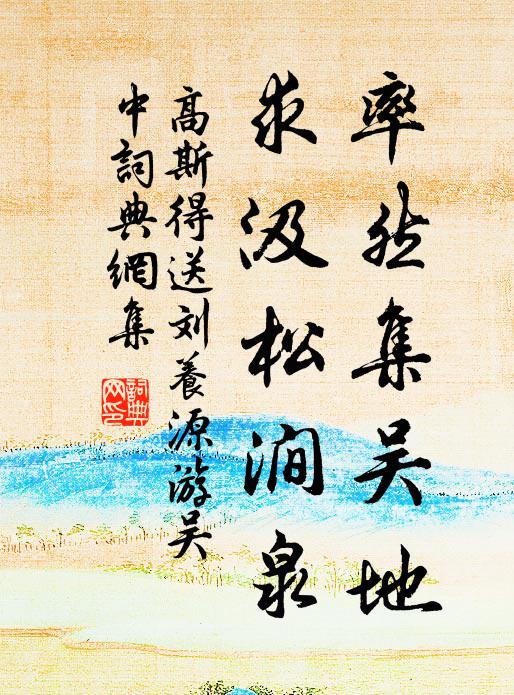 率然集吴地
求汲松涧泉
高斯得送刘養源游吴
中詞典網集
詞典
网印